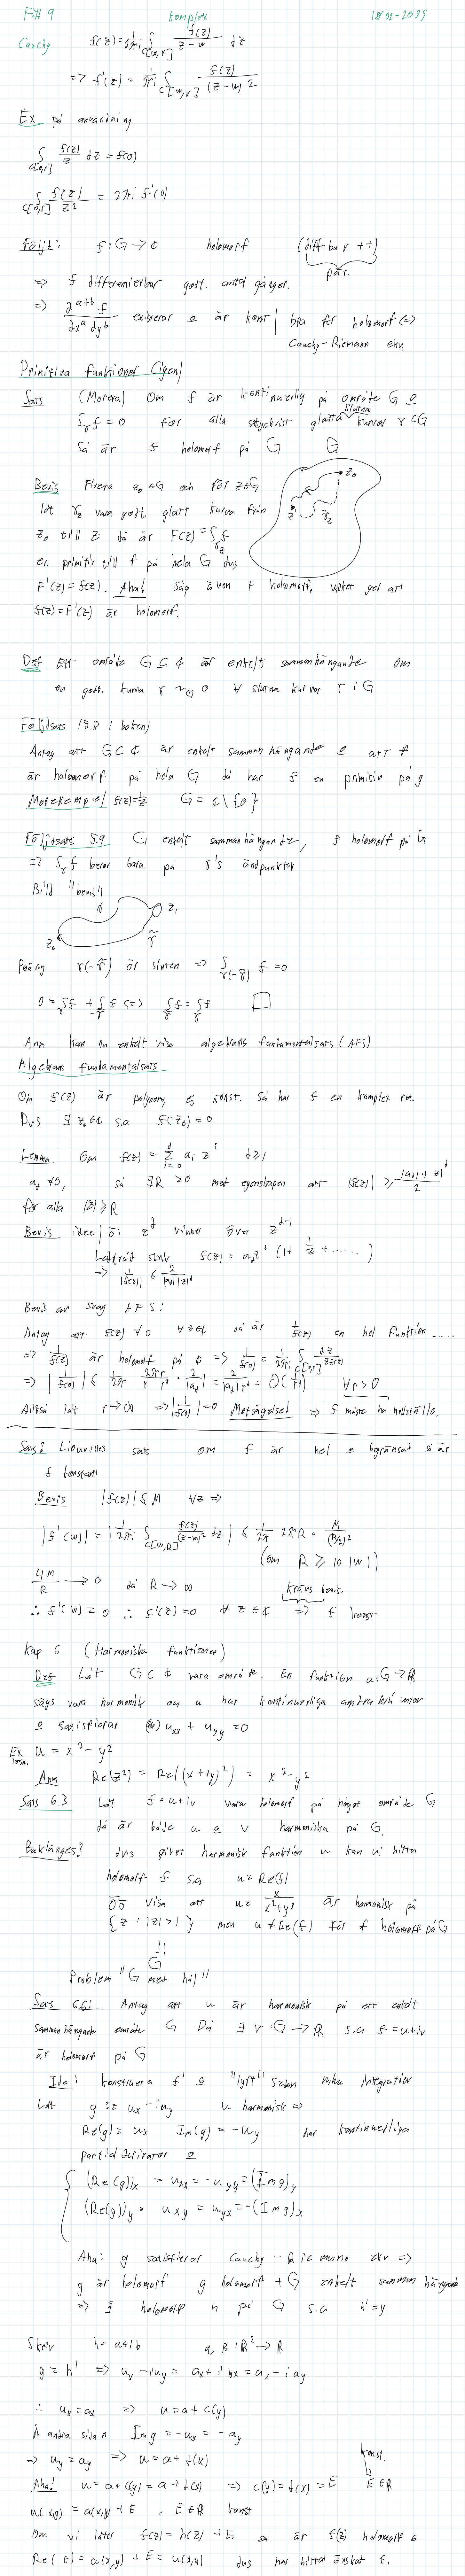 F# 9 komplex 18/02-2025
Cauchy f(z) = 1/2πi ∫_{C[w,r]} f(z)/(z-w) dz
=> f'(z) = 1/2πi ∫_{C[w,r]} f(z)/(z-w)2
Ex på användning
∫_{C[0,r]} f(z)/z dz = f(0)
∫_{C[0,r]} f(z)/z² = 2πi f'(0)
Följd: f: G → ℂ holomorf (diff bar ++)
=> f differentierbar godt. antal gånger.
=> ∂^{a+b} f / ∂x^a ∂y^b existerar o är kont | bra för holomorf <=>
Cauchy-Riemann ekv.
Primitiva funktioner (igen)
Sats (Morera) Om f är kontinuerlig på område G o
∫_γ f = 0 för alla styckvist glatta slutna kurvor γ ⊂ G
Så är f holomorf på G
G
Bevis Fixera z₀ ∈ G och för z ∈ G
z₀
låt γ_z vara godt. glatt kurva från
z γ_z
z₀ till z då är F(z) = ∫_{γ_z} f
en primitiv till f på hela G dvs
F'(z) = f(z). Aha! Såg även F holomorf, vilket ger att
f(z) = F'(z) är holomorf.
Def Ett område G ⊆ ℂ är enkelt sammanhängande om
en godt. kurva γ ~_G 0 ∀ slutna kurvor γ i G
Följdsats (5.8 i boken)
Antag att G ⊂ ℂ är enkelt sammanhängande o att f
är holomorf på hela G då har f en primitiv på g
Motexempel f(z) = 1/z G = ℂ \ {0}
Följdsats 5.9 G enkelt sammanhängande, f holomorf på G
=> ∫_γ f beror bara på γ's ändpunkter
Bild "bevis"
γ z₁
z₀ γ̃
Poäng γ(-γ̃) är sluten => ∫_{γ(-γ̃)} f = 0
0 = ∫_γ f + ∫_{-γ̃} f <=> ∫_γ̃ f = ∫_γ f □
Anm kan nu enkelt visa algebrans fundamentalsats (AFS)
Algebrans fundamentalsats
Om f(z) är polynom, ej konst. så har f en komplex rot.
Dvs ∃ z₀ ∈ ℂ s.a f(z₀) = 0
Lemma Om f(z) = Σ_{i=0}^{d} a_i z^i d ≥ 1
a_d ≠ 0, så ∃ R > 0 med egenskapen att |f(z)| ≥ |a_d| |z|^d / 2
för alla |z| ≥ R
Bevis idee | öi z^d vinner över z^{d-1}
skriv f(z) = a_d z^d (1 + 1/z + ......)
=> 1/|f(z)| ≤ 2/|a_d||z|^d
Bevis av svag AFS:
Antag att f(z) ≠ 0 ∀ z ∈ ℂ då är 1/f(z) en hel funktion ....
=> 1/f(z) är holomorf på ℂ => 1/f(0) = 1/2πi ∫_{C[0,r]} dz/zf(z)
=> |1/f(0)| ≤ 1/2π · 2πr/r · 1/r^d · 2/|a_d| = 2/|a_d| r^d = O(1/r^d) ∀ r > 0
Alltså låt r → ∞ => |1/f(0)| = 0 Motsägelse! => f måste ha nollställe.
Sats: Liouvilles sats om f är hel o begränsad så är
f konstant
Bevis |f(z)| ≤ M ∀z =>
|f'(w)| = |1/2πi ∫_{C[w,R]} f(z)/(z-w)² dz| ≤ 1/2π 2πR · M/(R/2)²
(om R ≥ 10|w|)
4M/R → 0 då R → ∞
krävs bevis.
∴ f'(w) = 0 ∴ f'(z) = 0 ∀ z ∈ ℂ => f konst
Kap 6 (Harmoniska funktioner)
Def Låt G ⊂ ℂ vara område. En funktion u: G → ℝ
sägs vara harmonisk om u har kontinuerliga andra
o satisfierar (*) u_xx + u_yy = 0
Ex u = x² - y²
Anm Re(z²) = Re((x+iy)²) = x² - y²
Sats 6.3 Låt f = u+iv vara holomorf på något område G
då är både u o v harmoniska på G.
Baklänges? dvs givet harmonisk funktion u kan vi hitta
holomorf f s.a u = Re(f)
ÖÖ visa att u = x/(x²+y²) är harmonisk på
{z : |z| > 1} men u ≠ Re(f) för f holomorf på G
!!
G
Problem "G med hål"
Sats 6.6: Antag att u är harmonisk på ett enkelt
sammanhängande område G Då ∃ v: G → ℝ s.a f = u+iv
är holomorf på G
Ide: konstruera f' o "lyft" sedan mha integration
Låt g := u_x - iu_y u harmonisk =>
Re(g) = u_x Im(g) = -u_y har kontinuerliga
partialderivator o
(Re(g))_x = u_xx = -u_yy = (Im g)_y
(Re(g))_y = u_xy = u_yx = -(Im g)_x
Aha: g satisfierar Cauchy-Riemanns ekv =>
g är holomorf g holomorf + G enkelt sammanhängande
=> ∃ holomorf h på G s.a h' = g
Skriv h = a+ib a, b: ℝ² → ℝ
g = h' => u_x - iu_y = a_x + i b_x = a_x - i a_y
∴ u_x = a_x => u = a + c(y)
Å andra sidan Im g = -u_y = -a_y
=> u_y = a_y => u = a + d(x)
konst.
Aha! u = a + c(y) = a + d(x) => c(y) = d(x) = E E ∈ ℝ
u(x,y) = a(x,y) + E, E ∈ ℝ konst
Om vi låter f(z) = h(z) + E så är f(z) holomorf o
Re(f) = a(x,y) + E = u(x,y) dvs har hittat önskat f.